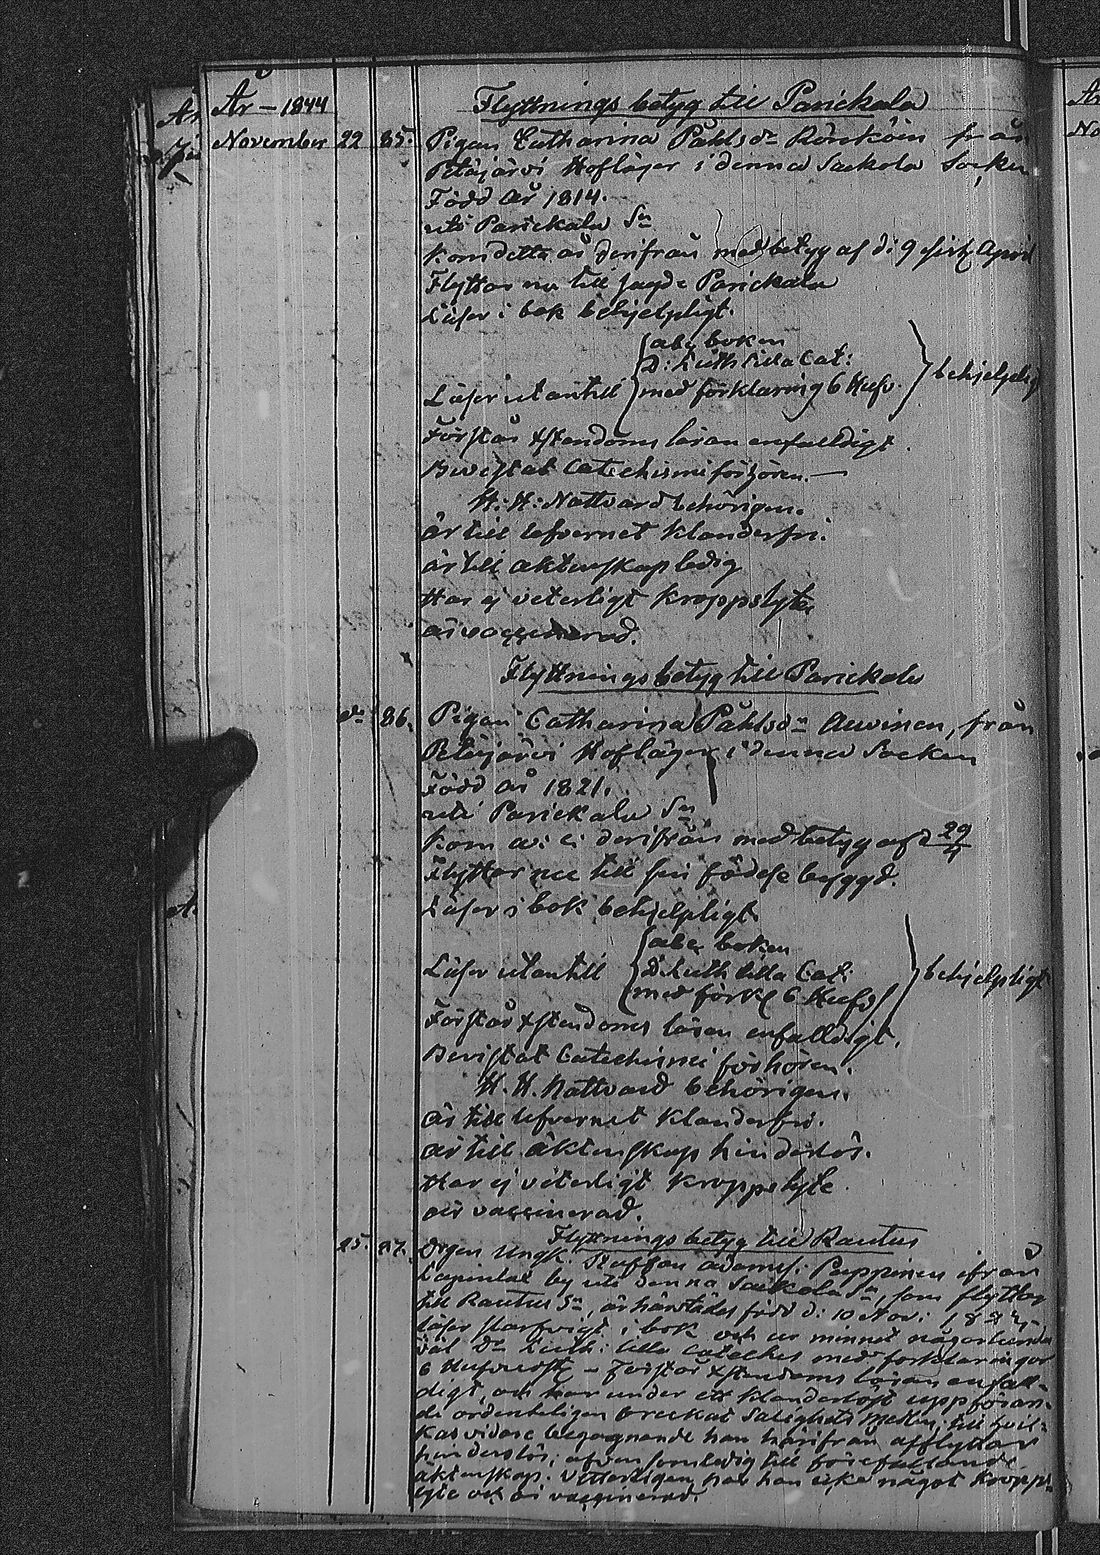 År – 1844
Flyttnings betyg till Parickala
November 22 85. Pigan Catharina Påhlsdr från
Petäjärvi Hofläger i denna Sackola Socken
Född år 1814.
uti Parickala Sn
Kom detta år derifrån med betyg af d: 9 April
Flyttar nu till sagde Parickala
Läser i bok behjelpligt.
abc boken
D: Luth lilla Cat:
Läser utantill med förklaring 6 Hufv. behjelplig
Förstår Xstendoms läran enfalldigt.
Bevistat Catechismi förhören.
H: H: Nattvard behörigen.
är till lefvernet klanderfri.
är till äktenskap ledig
Har ej veterligt kroppslyte
är vaccinerad.
Flyttnings betyg till Parickala
dn 86. Pigan Catharina Påhlsdn Auvinen, från
Petäjärvi Hofläger i denna Socken
Född år 1821.
uti Parickala Sn
Kom derifrån med betyg af d 29/4
Flyttar nu till sin födelse byggd.
Läser i bok behjelpligt
abc boken
Läser utantill D: Luth lilla Cat: behjelpligt
med förkl 6 Hufvs
Förstår Xstendoms läran enfalldigt.
Bevistat Catechismi förhören.
H. H. Nattvard behörigen.
är till lefvernet klanderfri.
är till äktenskap hinderlös.
Har ej veterligt kroppslyte
är vaccinerad.
Flyttnings betyg till Rautus
25. 87. Drgen Ungk. Staffan Adamss: Pappinen ifrån
by uti denna Sackola Sn, som flyttar
till Rautus Sn, är härstädes född d: 10 Nov:
läser i bok och ur minnet någorlunda
väl Dr Luth: lilla Cateches med förklaringar
6 Hufvudst – Förstår Xstendoms läran enfall-
digt, och har under ett klanderlöst uppföran-
de ordenteligen bruckat Salighets Medlen; till hvil-
kas vidare begagnande han härifrån afflyttar
hinderslös; äfven som ledig till förefallande
äktenskap. Vetterligen har han icke något kropps-
lyte och är vaccinerad.